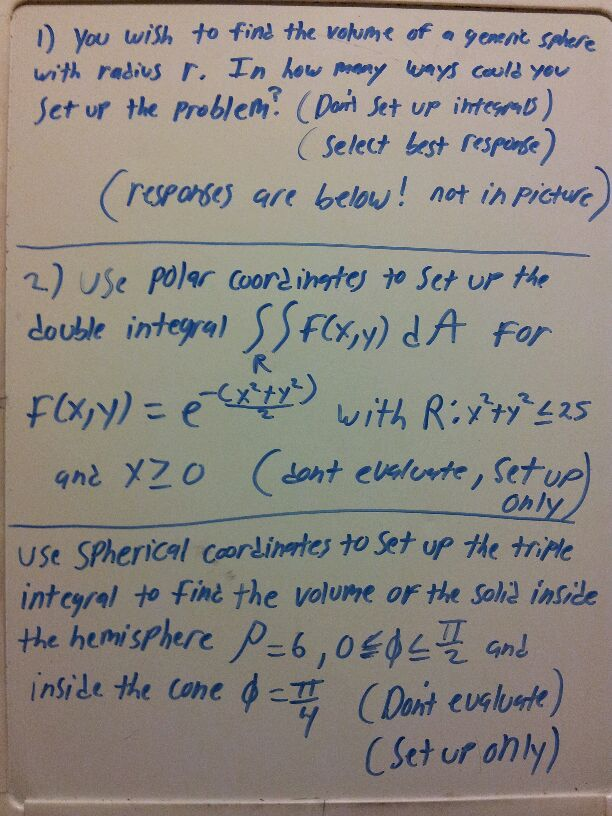 1) You wish to find the volume of a generic sphere
with radius r. In how many ways could you
set up the problem? (Don't set up integrals)
(select best response)
(responses are below! not in picture)
2) use polar coordinates to set up the
double integral ∫∫_R F(x,y) dA for
F(x,y) = e^(-(x²+y²)/2) with R: x²+y² ≤ 25
and x ≥ 0 (dont evaluate, set up
only)
use spherical coordinates to set up the triple
integral to find the volume of the solid inside
the hemisphere ρ=6, 0≤φ≤π/2 and
inside the cone φ=π/4 (Don't evaluate)
(set up only)